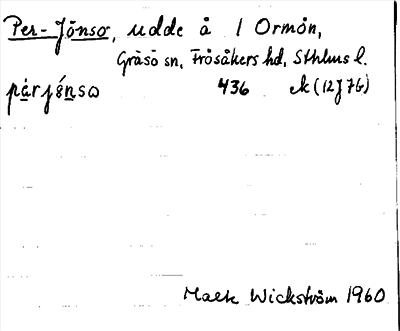 Per-Jönso, udde å 1 Ormön,
Gräsö sn, Frösåkers hd, Sthlms l.
pärjönsω 436 ek (12J7b)
Maek Wickström 1960